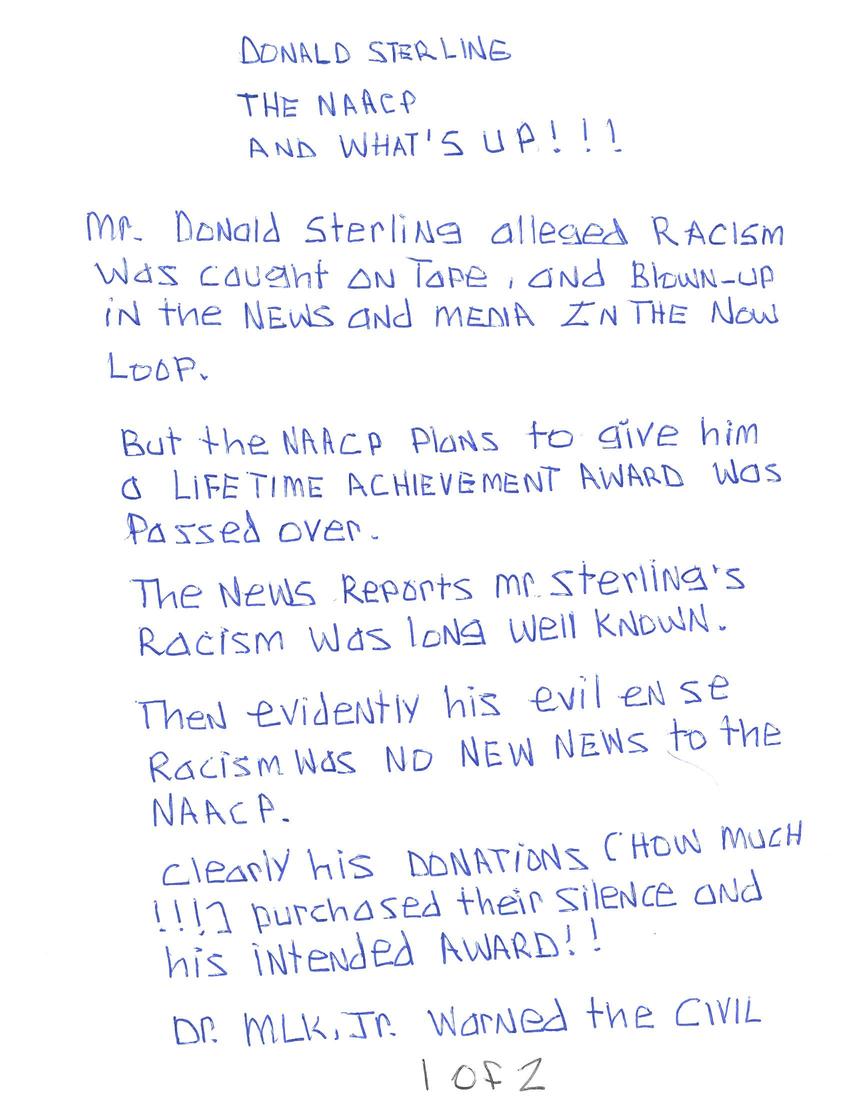 DONALD STERLING
THE NAACP
AND WHAT'S UP!!!
Mr. DoNald Sterling alleged RACISM
Was caught ON Tape, and Blown-up
in the NEWS and MEDIA IN THE Now
LOOP.
But the NAACP Plans to give him
a LIFETIME ACHIEVEMENT AWARD Was
Passed over.
The News Reports mr. Sterling's
Racism Was long Well KNOWN.
Then evidently his evil en se
Racism Was NO NEW NEWS to the
NAACP.
Clearly his DONATIONS (HOW MUCH
!!!] purchased their silence and
his intended AWARD!!
Dr. MLK, Jr. Warned the CIVIL
1 of 2